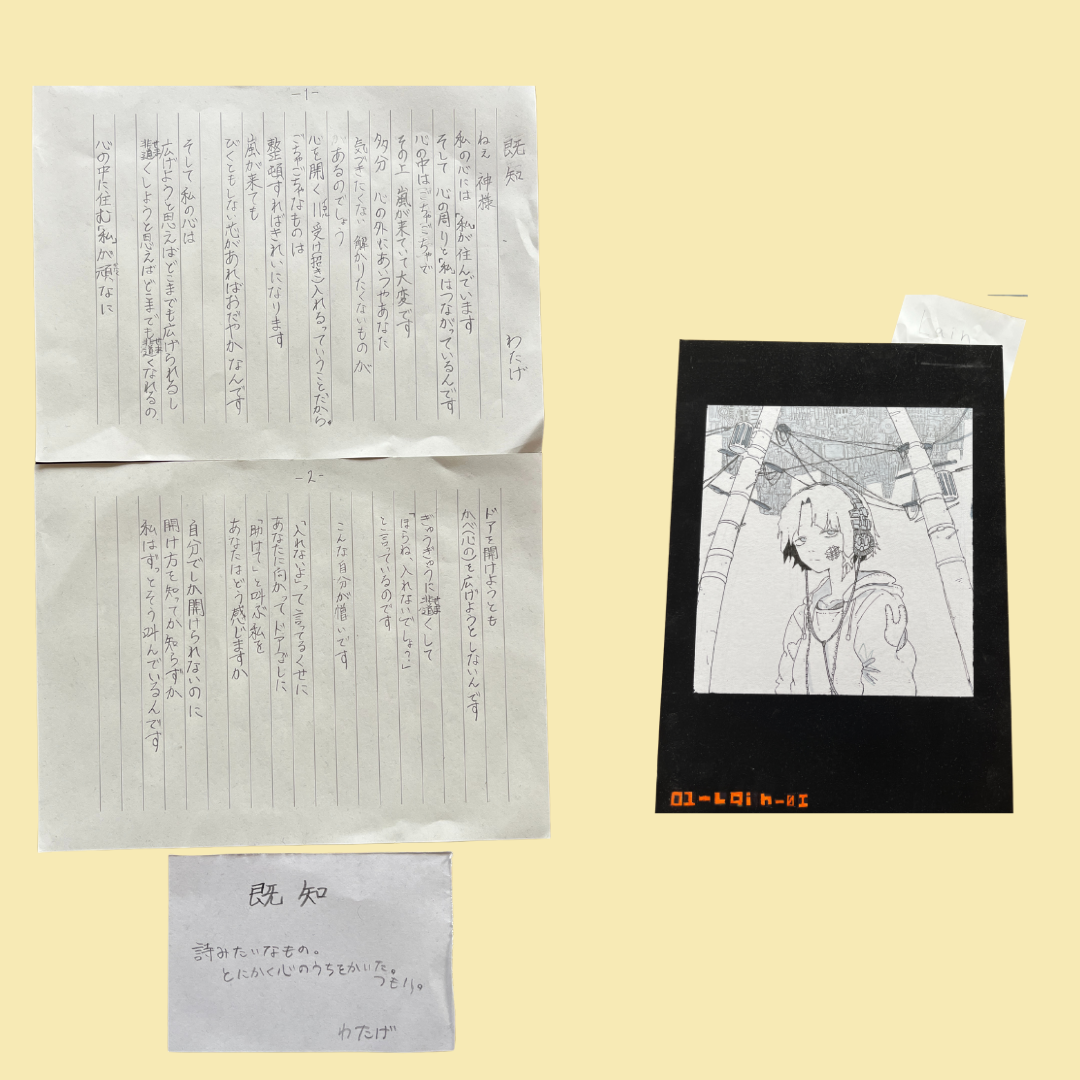 -1-
既知
わたげ
ねぇ 神様
私の心には「私」が住んでいます
そして 心の周りと「私」はつながっているんです
心の中はごちゃごちゃで
その上 嵐が来ていて大変です
多分 心の外にあいつやあなた
気づきたくない 解かりたくないものが
あるのでしょう
心を開く＝受け(招き)入れるっていうことだから。
ごちゃごちゃなものは
整頓すればきれいになります
嵐が来ても
びくともしない芯があればおだやかなんです
そして 私の心は
広げようと思えばどこまでも広げられるし
非道くしようと思えばどこまでも非道くなれるの
心の中に住む「私」が頑なに
-2-
ドアを開けようとも
かべ(心の)を広げようとしないんです
ぎゅうぎゅうに非道くして
「ほらね、入れないでしょ？」
と言っているのです
こんな自分が憎いです
「入れないよ」って言ってるくせに
あなたに向かって、ドアごしに
「助けて」と叫ぶ私を
あなたはどう感じますか
自分でしか開けられないのに
開け方を知ってか知らずか
私はずっとそう叫んでいるんです
既知
詩みたいなもの。
とにかく心のうちをかいた。
つもり。
わたげ
01-Lain-01